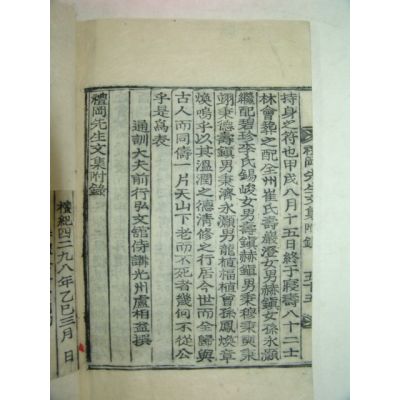 持身之符也甲戌八月十五日終于寢壽八十二士
林會葬之配全州崔氏壽巖澄女男赫鎭女孫永灝
繼配碧珍李氏錫峻女男壽鎭赫鎭男秉穆秉奭秉
翊秉德壽鎭男秉濟永灝男龍植福植曾孫鳳煥章
煥嗚乎以其溫潤之德清修之行居今世而全歸與
古人而同儔一片天山下老而不死者幾何不從公
乎是爲表
通訓大夫前行弘文館侍講光州盧相益撰
禮岡先生文集附錄
檀紀四二九八年乙巳三月 日
禮岡先生文集附錄 五十五